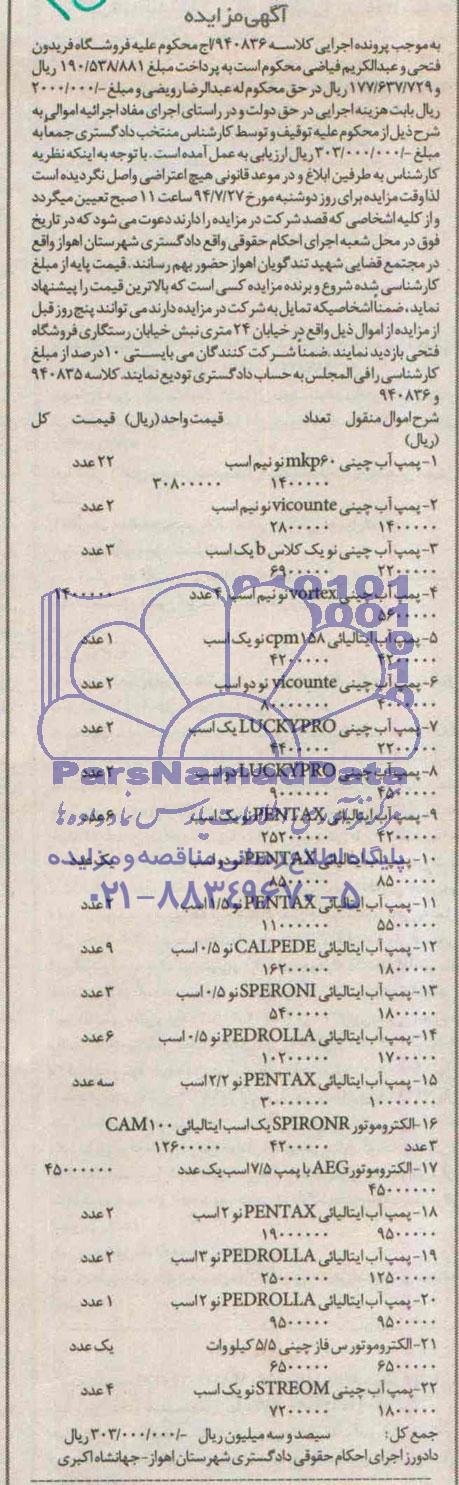 آگهی مزایده
به موجب پرونده اجرایی کلاسه ۹۴۰۸۳۶/اج محکوم علیه فروشگاه فریدون
فتحی و عبدالکریم فیاضی محکوم است به پرداخت مبلغ ۱۹۰/۵۳۸/۸۸۱ ریال
و ۱۷۷/۶۳۷/۷۲۹ ریال در حق محکوم له عبدالرضا رویضی و مبلغ -/۲۰۰۰/۰۰۰
ریال بابت هزینه اجرایی در حق دولت و در راستای اجرای مفاد اجرائیه اموالی به
شرح ذیل از محکوم علیه توقیف و توسط کارشناس منتخب دادگستری جمعا به
مبلغ -/۳۰۳/۰۰۰/۰۰۰ ریال ارزیابی به عمل آمده است. با توجه به اینکه نظریه
کارشناس به طرفین ابلاغ و در موعد قانونی هیچ اعتراضی واصل نگردیده است
لذا وقت مزایده برای روز دوشنبه مورخ ۹۴/۷/۲۷ ساعت ۱۱ صبح تعیین میگردد
و از کلیه اشخاصی که قصد شرکت در مزایده را دارند دعوت می شود که در تاریخ
فوق در محل شعبه اجرای احکام حقوقی واقع دادگستری شهرستان اهواز واقع
در مجتمع قضایی شهید تندگویان اهواز حضور بهم رسانند. قیمت پایه از مبلغ
کارشناسی شده شروع و برنده مزایده کسی است که بالاترین قیمت را پیشنهاد
نماید، ضمناً اشخاصیکه تمایل به شرکت در مزایده دارند می توانند پنج روز قبل
از مزایده از اموال ذیل واقع در خیابان ۲۴ متری نبش خیابان رستگاری فروشگاه
فتحی بازدید نمایند. ضمناً شرکت کنندگان می بایستی ۱۰ درصد از مبلغ
کارشناسی را فی المجلس به حساب دادگستری تودیع نمایند. کلاسه ۹۴۰۸۳۵
و ۹۴۰۸۳۶
شرح اموال منقول تعداد قیمت واحد (ریال) قیمت کل
(ریال)
۱- پمپ آب چینی mkp۶۰ نو نیم اسب ۲۲ عدد
۱۴۰۰۰۰۰ ۳۰۸۰۰۰۰۰
۲- پمپ آب چینی vicounte نو نیم اسب ۲ عدد
۱۴۰۰۰۰۰ ۲۸۰۰۰۰۰
۳- پمپ آب چینی نو یک کلاس b یک اسب ۳ عدد
۲۲۰۰۰۰۰ ۶۹۰۰۰۰۰
۴- پمپ آب چینی vortex نو نیم اسب ۴ عدد ۱۴۰۰۰۰۰
۵۶۰۰۰۰۰
۵- پمپ آب ایتالیائی cpm۱۵۸ نو یک اسب ۱ عدد
۴۲۰۰۰۰۰ ۴۲۰۰۰۰۰
۶- پمپ آب چینی vicounte نو دو اسب ۲ عدد
۴۰۰۰۰۰۰ ۸۰۰۰۰۰۰
۷- پمپ آب چینی LUCKYPRO یک اسب ۲ عدد
۲۲۰۰۰۰۰ ۴۴۰۰۰۰۰
۸- پمپ آب چینی LUCKYPRO دو اسب ۲ عدد
۴۵۰۰۰۰۰ ۹۰۰۰۰۰۰
ParsNamadData
۹- پمپ آب ایتالیائی PENTAX نو یک اسب ۶ عدد
۴۲۰۰۰۰۰ ۲۵۲۰۰۰۰۰
۱۰- پمپ آب ایتالیائی PENTAX نو دو اسب یک عدد
۸۵۰۰۰۰۰ ۸۵۰۰۰۰۰
پایگاه اطلاع رسانی مناقصه و مزایده
۱۱- پمپ آب ایتالیائی PENTAX نو ۱/۵ اسب ۲ عدد
۵۵۰۰۰۰۰ ۱۱۰۰۰۰۰۰
۰۲۱-۸۸۳۴۹۶۷۰-۵
۱۲- پمپ آب ایتالیائی CALPEDE نو ۰/۵ اسب ۹ عدد
۱۸۰۰۰۰۰ ۱۶۲۰۰۰۰۰
۱۳- پمپ آب ایتالیائی SPERONI نو ۰/۵ اسب ۳ عدد
۱۸۰۰۰۰۰ ۵۴۰۰۰۰۰
۱۴- پمپ آب ایتالیائی PEDROLLA نو ۰/۵ اسب ۶ عدد
۱۷۰۰۰۰۰ ۱۰۲۰۰۰۰۰
۱۵- پمپ آب ایتالیائی PENTAX نو ۲/۲ اسب سه عدد
۱۰۰۰۰۰۰۰ ۳۰۰۰۰۰۰۰
۱۶- الکتروموتور SPIRONR یک اسب ایتالیائی CAM۱۰۰
۳ عدد ۴۲۰۰۰۰۰ ۱۲۶۰۰۰۰۰
۱۷- الکتروموتور AEG با پمپ ۷/۵ اسب یک عدد ۴۵۰۰۰۰۰۰
۴۵۰۰۰۰۰۰
۱۸- پمپ آب ایتالیائی PENTAX نو ۲ اسب ۲ عدد
۹۵۰۰۰۰۰ ۱۹۰۰۰۰۰۰
۱۹- پمپ آب ایتالیائی PEDROLLA نو ۳ اسب ۲ عدد
۱۲۵۰۰۰۰۰ ۲۵۰۰۰۰۰۰
۲۰- پمپ آب ایتالیائی PEDROLLA نو ۲ اسب ۱ عدد
۹۵۰۰۰۰۰ ۹۵۰۰۰۰۰
۲۱- الکتروموتور س فاز چینی ۵/۵ کیلو وات یک عدد
۶۵۰۰۰۰۰ ۶۵۰۰۰۰۰
۲۲- پمپ آب چینی STREOM نو یک اسب ۴ عدد
۱۸۰۰۰۰۰ ۷۲۰۰۰۰۰
جمع کل: سیصد و سه میلیون ریال -/۳۰۳/۰۰۰/۰۰۰ ریال
دادورز اجرای احکام حقوقی دادگستری شهرستان اهواز - جهانشاه اکبری